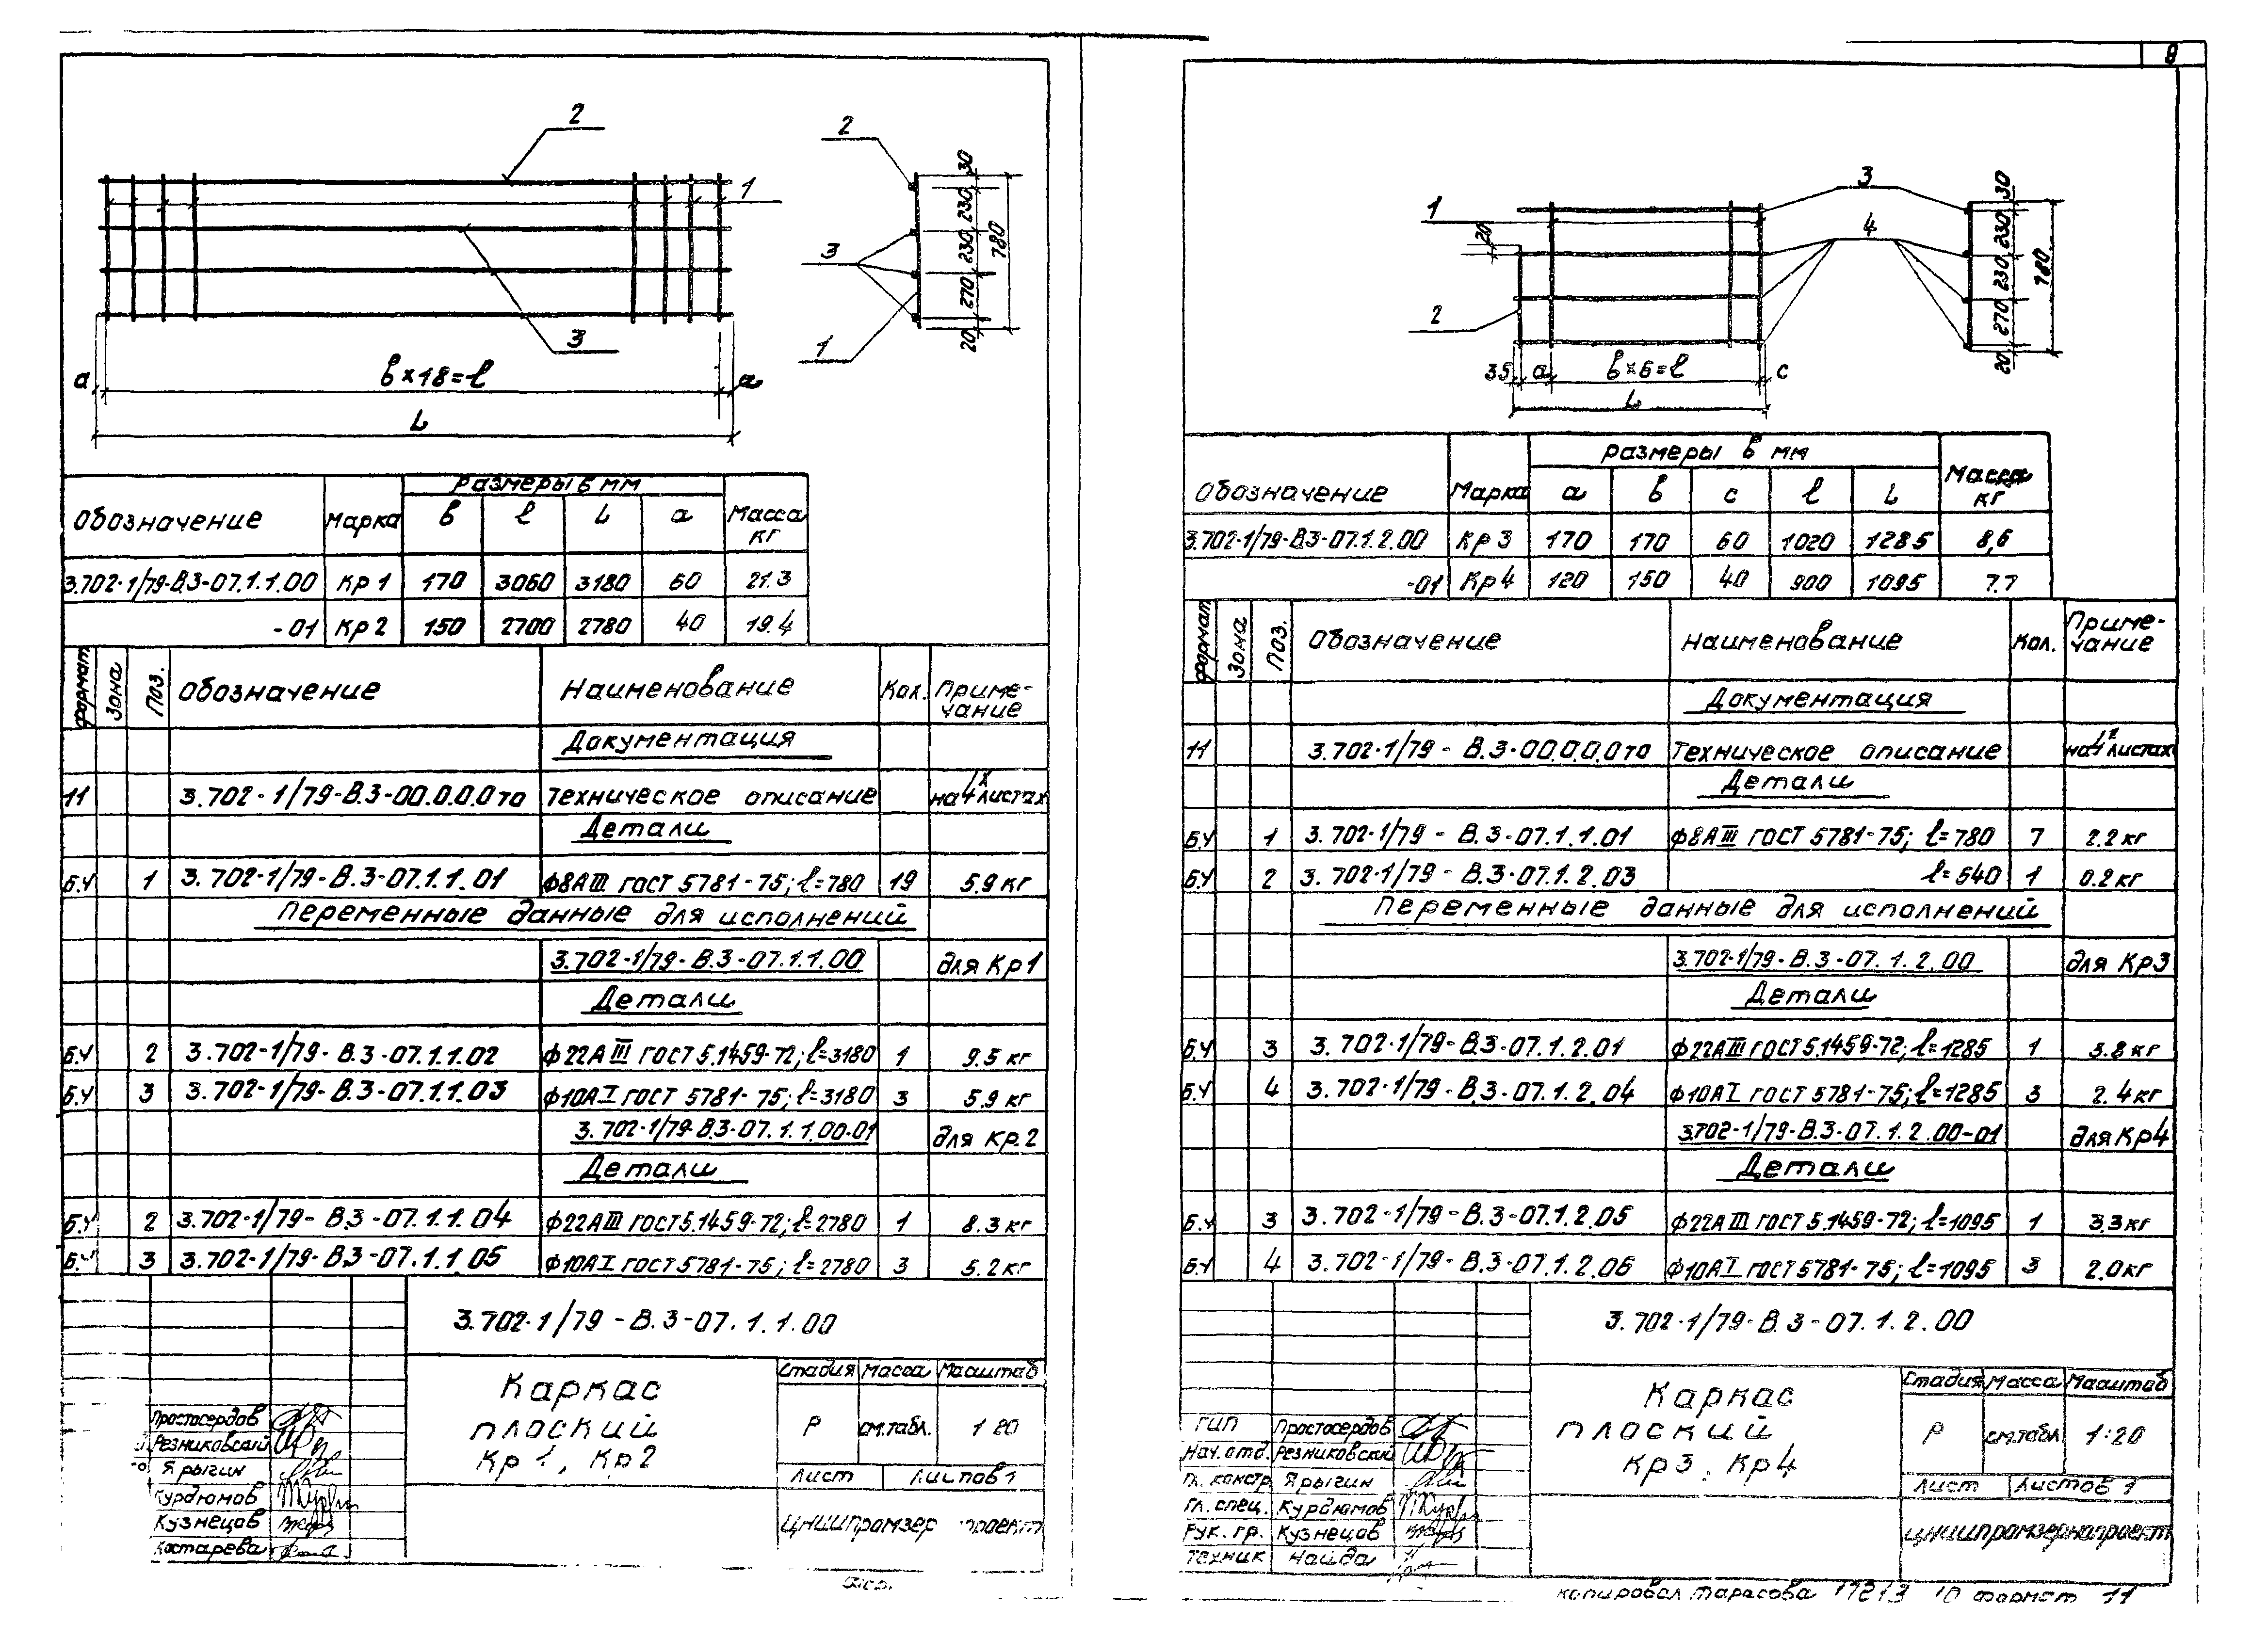 2
2
1
3
3
1
30
230
230
270
20
780
a
в×18=ℓ
a
L
Размеры в мм
Обозначение Марка в ℓ L a Масса кг
3.702-1/79-В.3-07.1.1.00 Кр1 170 3060 3180 60 21.3
-01 Кр2 150 2700 2780 40 19.4
Формат Зона Поз. Обозначение Наименование Кол. Приме-
чание
Документация
11 3.702-1/79-В.3-00.0.0.0то Техническое описание на 4х листах
Детали
Б.Ч 1 3.702-1/79-В.3-07.1.1.01 ф8АIII ГОСТ 5781-75; ℓ=780 19 5.9 кг
Переменные данные для исполнений
3.702-1/79-В.3-07.1.1.00 для Кр1
Детали
Б.Ч 2 3.702-1/79-В.3-07.1.1.02 ф22АIII ГОСТ 5.1459-72; ℓ=3180 1 9.5 кг
Б.Ч 3 3.702-1/79-В.3-07.1.1.03 ф10АI ГОСТ 5781-75; ℓ=3180 3 5.9 кг
3.702-1/79-В.3-07.1.1.00-01 для Кр.2
Детали
Б.Ч 2 3.702-1/79-В.3-07.1.1.04 ф22АIII ГОСТ 5.1459-72; ℓ=2780 1 8.3 кг
Б.Ч 3 3.702-1/79-В.3-07.1.1.05 ф10АI ГОСТ 5781-75; ℓ=2780 3 5.2 кг
3.702-1/79-В.3-07.1.1.00
Каркас
плоский
Кр1, Кр2
Стадия Масса Масштаб
Р см.табл. 1 20
Лист Листов 1
Простосердов
Резниковский
Ярыгин
Курдюмов
Кузнецов
Костарева
ЦНИИпромзер проект
9
3
1
4
2
20
30
230
230
270
20
780
35 a в×6=ℓ c
L
Размеры в мм
Обозначение Марка a в c ℓ L Масса кг
3.702-1/79-В.3-07.1.2.00 Кр3 170 170 60 1020 1285 8,6
-01 Кр4 120 150 40 900 1095 7.7
Формат Зона Поз. Обозначение Наименование Кол. Приме-
чание
Документация
11 3.702-1/79-В.3-00.0.0.0то Техническое описание на 4х листах
Детали
Б.Ч 1 3.702-1/79-В.3-07.1.1.01 ф8АIII ГОСТ 5781-75; ℓ=780 7 2.2 кг
Б.Ч 2 3.702-1/79-В.3-07.1.2.03 ℓ=540 1 0.2 кг
Переменные данные для исполнений
3.702-1/79-В.3-07.1.2.00 для Кр3
Детали
Б.Ч 3 3.702-1/79-В.3-07.1.2.01 ф22АIII ГОСТ 5.1459-72; ℓ=1285 1 3.8 кг
Б.Ч 4 3.702-1/79-В.3-07.1.2.04 ф10АI ГОСТ 5781-75; ℓ=1285 3 2.4 кг
3.702-1/79-В.3-07.1.2.00-01 для Кр4
Детали
Б.Ч 3 3.702-1/79-В.3-07.1.2.05 ф22АIII ГОСТ 5.1459-72; ℓ=1095 1 3.3 кг
Б.Ч 4 3.702-1/79-В.3-07.1.2.06 ф10АI ГОСТ 5781-75; ℓ=1095 3 2.0 кг
3.702-1/79-В.3-07.1.2.00
Каркас
плоский
Кр3, Кр4
Стадия Масса Масштаб
Р см.табл. 1:20
Лист Листов 1
ГИП Простосердов
Нач.отд. Резниковский
Гл. констр. Ярыгин
Гл. спец. Курдюмов
Рук. гр. Кузнецов
Техник Найда
ЦНИИпромзернопроект
Копировал Тарасова 17273 10 Формат 11